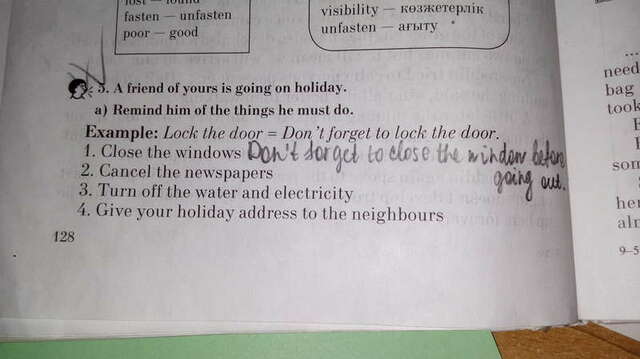 fasten — unfasten
poor — good
visibility — көзжетерлік
unfasten — ағыту
3. A friend of yours is going on holiday.
a) Remind him of the things he must do.
Example: Lock the door = Don't forget to lock the door.
1. Close the windows Don't forget to close the window
going out.
2. Cancel the newspapers
3. Turn off the water and electricity
4. Give your holiday address to the neighbours
128
...
need
bag
took
9-5